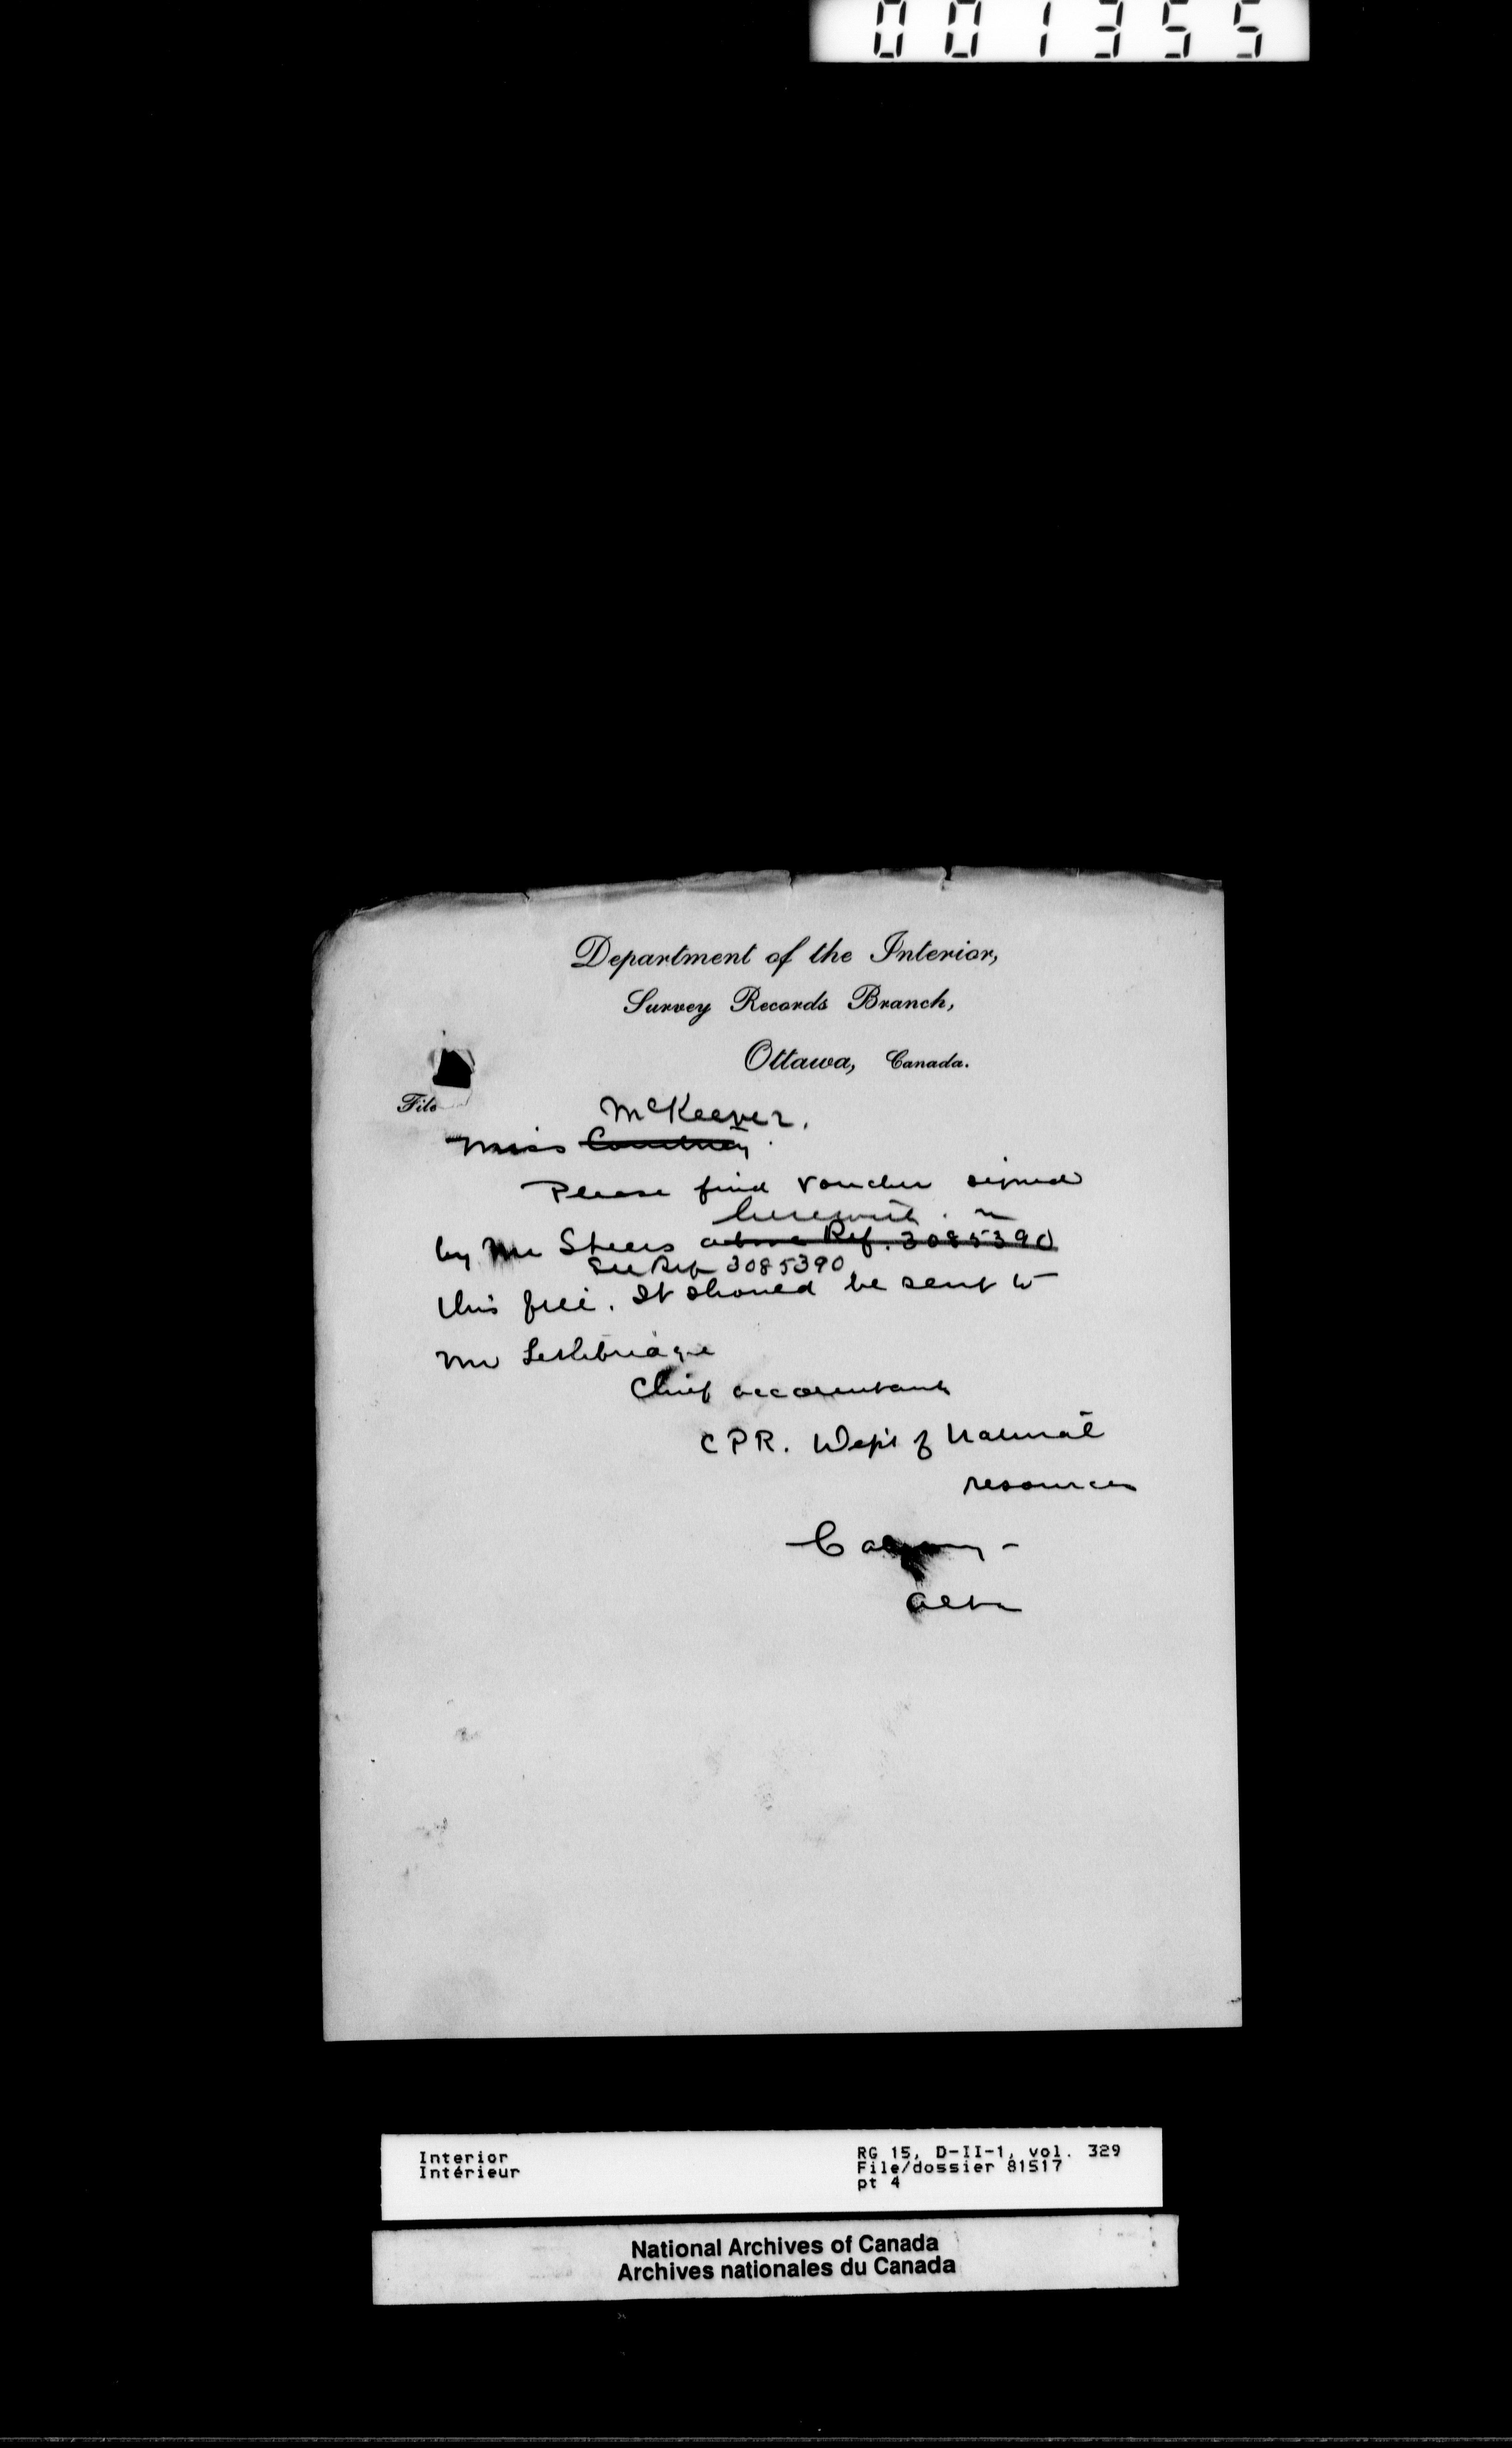 001355
Department of the Interior,
Survey Records Branch,
Ottawa, Canada.
File
McKeever.
Miss Courtney.
Please find voucher signed
herewith.
by Mr Steers above Ref. 3085390
See Ref 3085390
this file. It should be sent to
Mr Lethbridge
Chief accountant
CPR. Dept of Natural
resources
Calgary -
Alta
Interior
Intérieur
RG 15, D-II-1, vol. 329
File/dossier 81517
pt 4
National Archives of Canada
Archives nationales du Canada